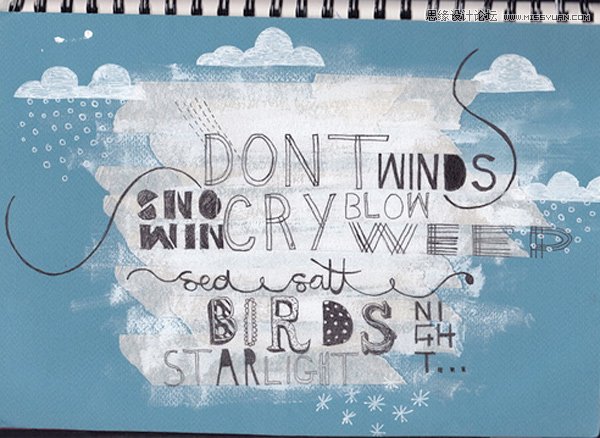 思缘设计论坛 WWW.MISSYUAN.COM
DONT WINDS
SNO CRY BLOW
WIN WEEP
sed salt
BIRDS NI
GH
STARLIGHT T...